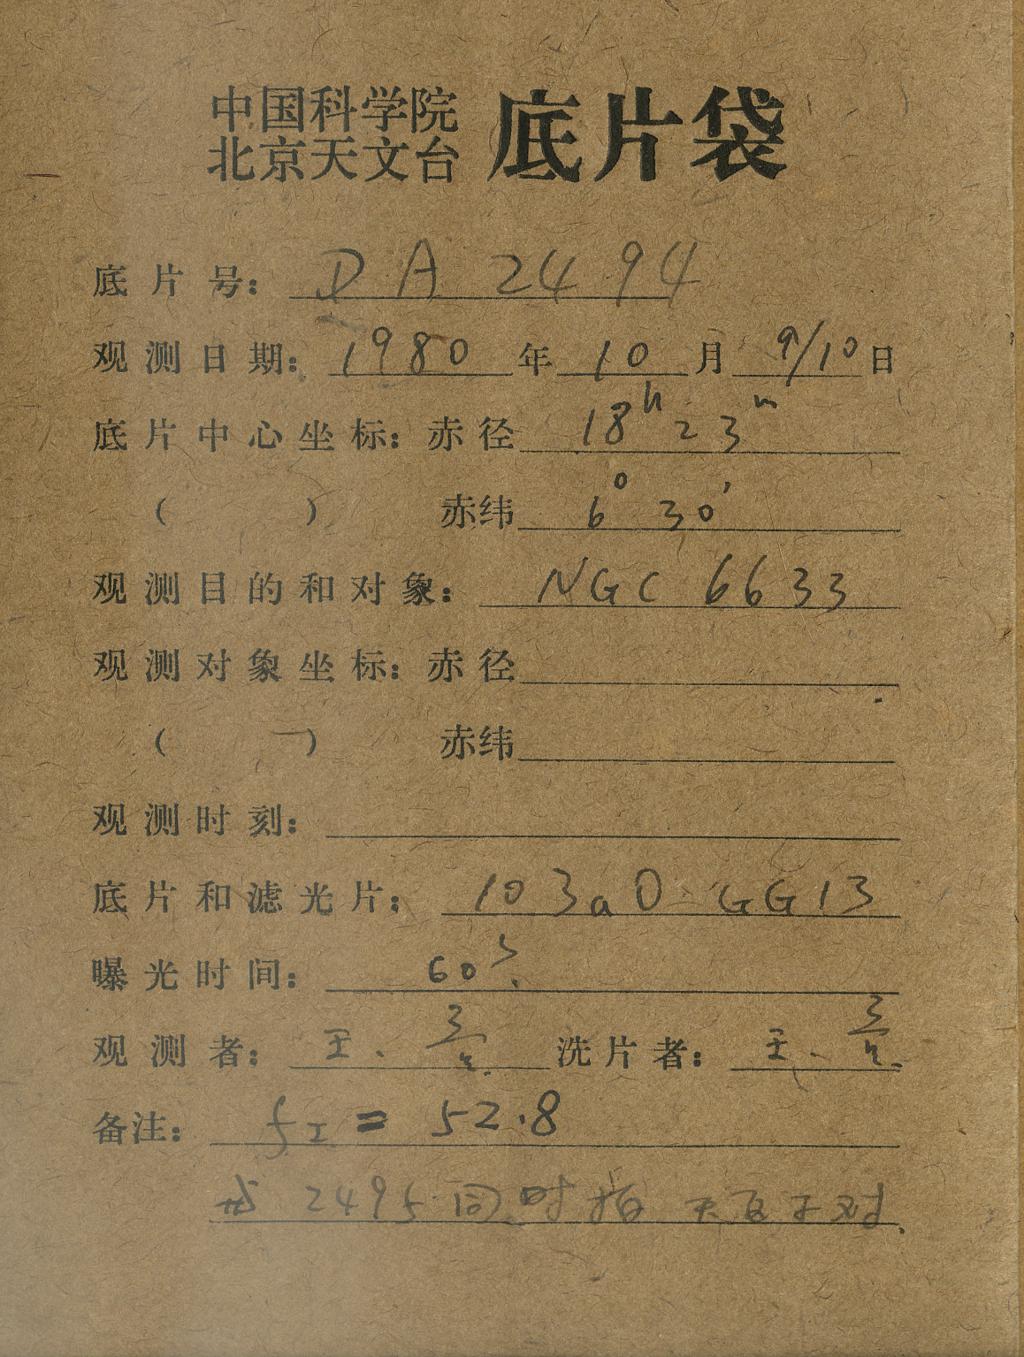 中国科学院
北京天文台
底片袋
底片号: DA 2494
观测日期: 1980 年 10 月 9/10 日
底片中心坐标: 赤径 18h 23m
( ) 赤纬 6° 30′
观测目的和对象: NGC 6633
观测对象坐标: 赤径
( ) 赤纬
观测时刻:
底片和滤光片: 103aO GG13
曝光时间: 60
观测者: 王、 洗片者: 王、
备注: fI = 52.8
与 2495 同时拍